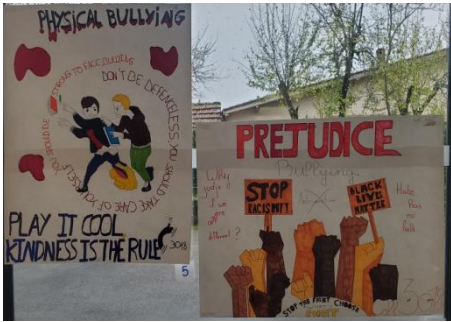 PHYSICAL BULLYING
YOU SHOULD BE STRONG TO FACE BULLYING
DON'T BE DEFENCELESS, YOU SHOULD TAKE CARE OF YOURSELF
PLAY IT COOL
KINDNESS IS THE RULE
5
PREJUDICE
Bullying
Why
judge it
if we
are
all
different?
STOP
RACISM!!
BLACK
LIVES
MATTER
Hate
Has
no
STOP THE FIGHT CHOOSE